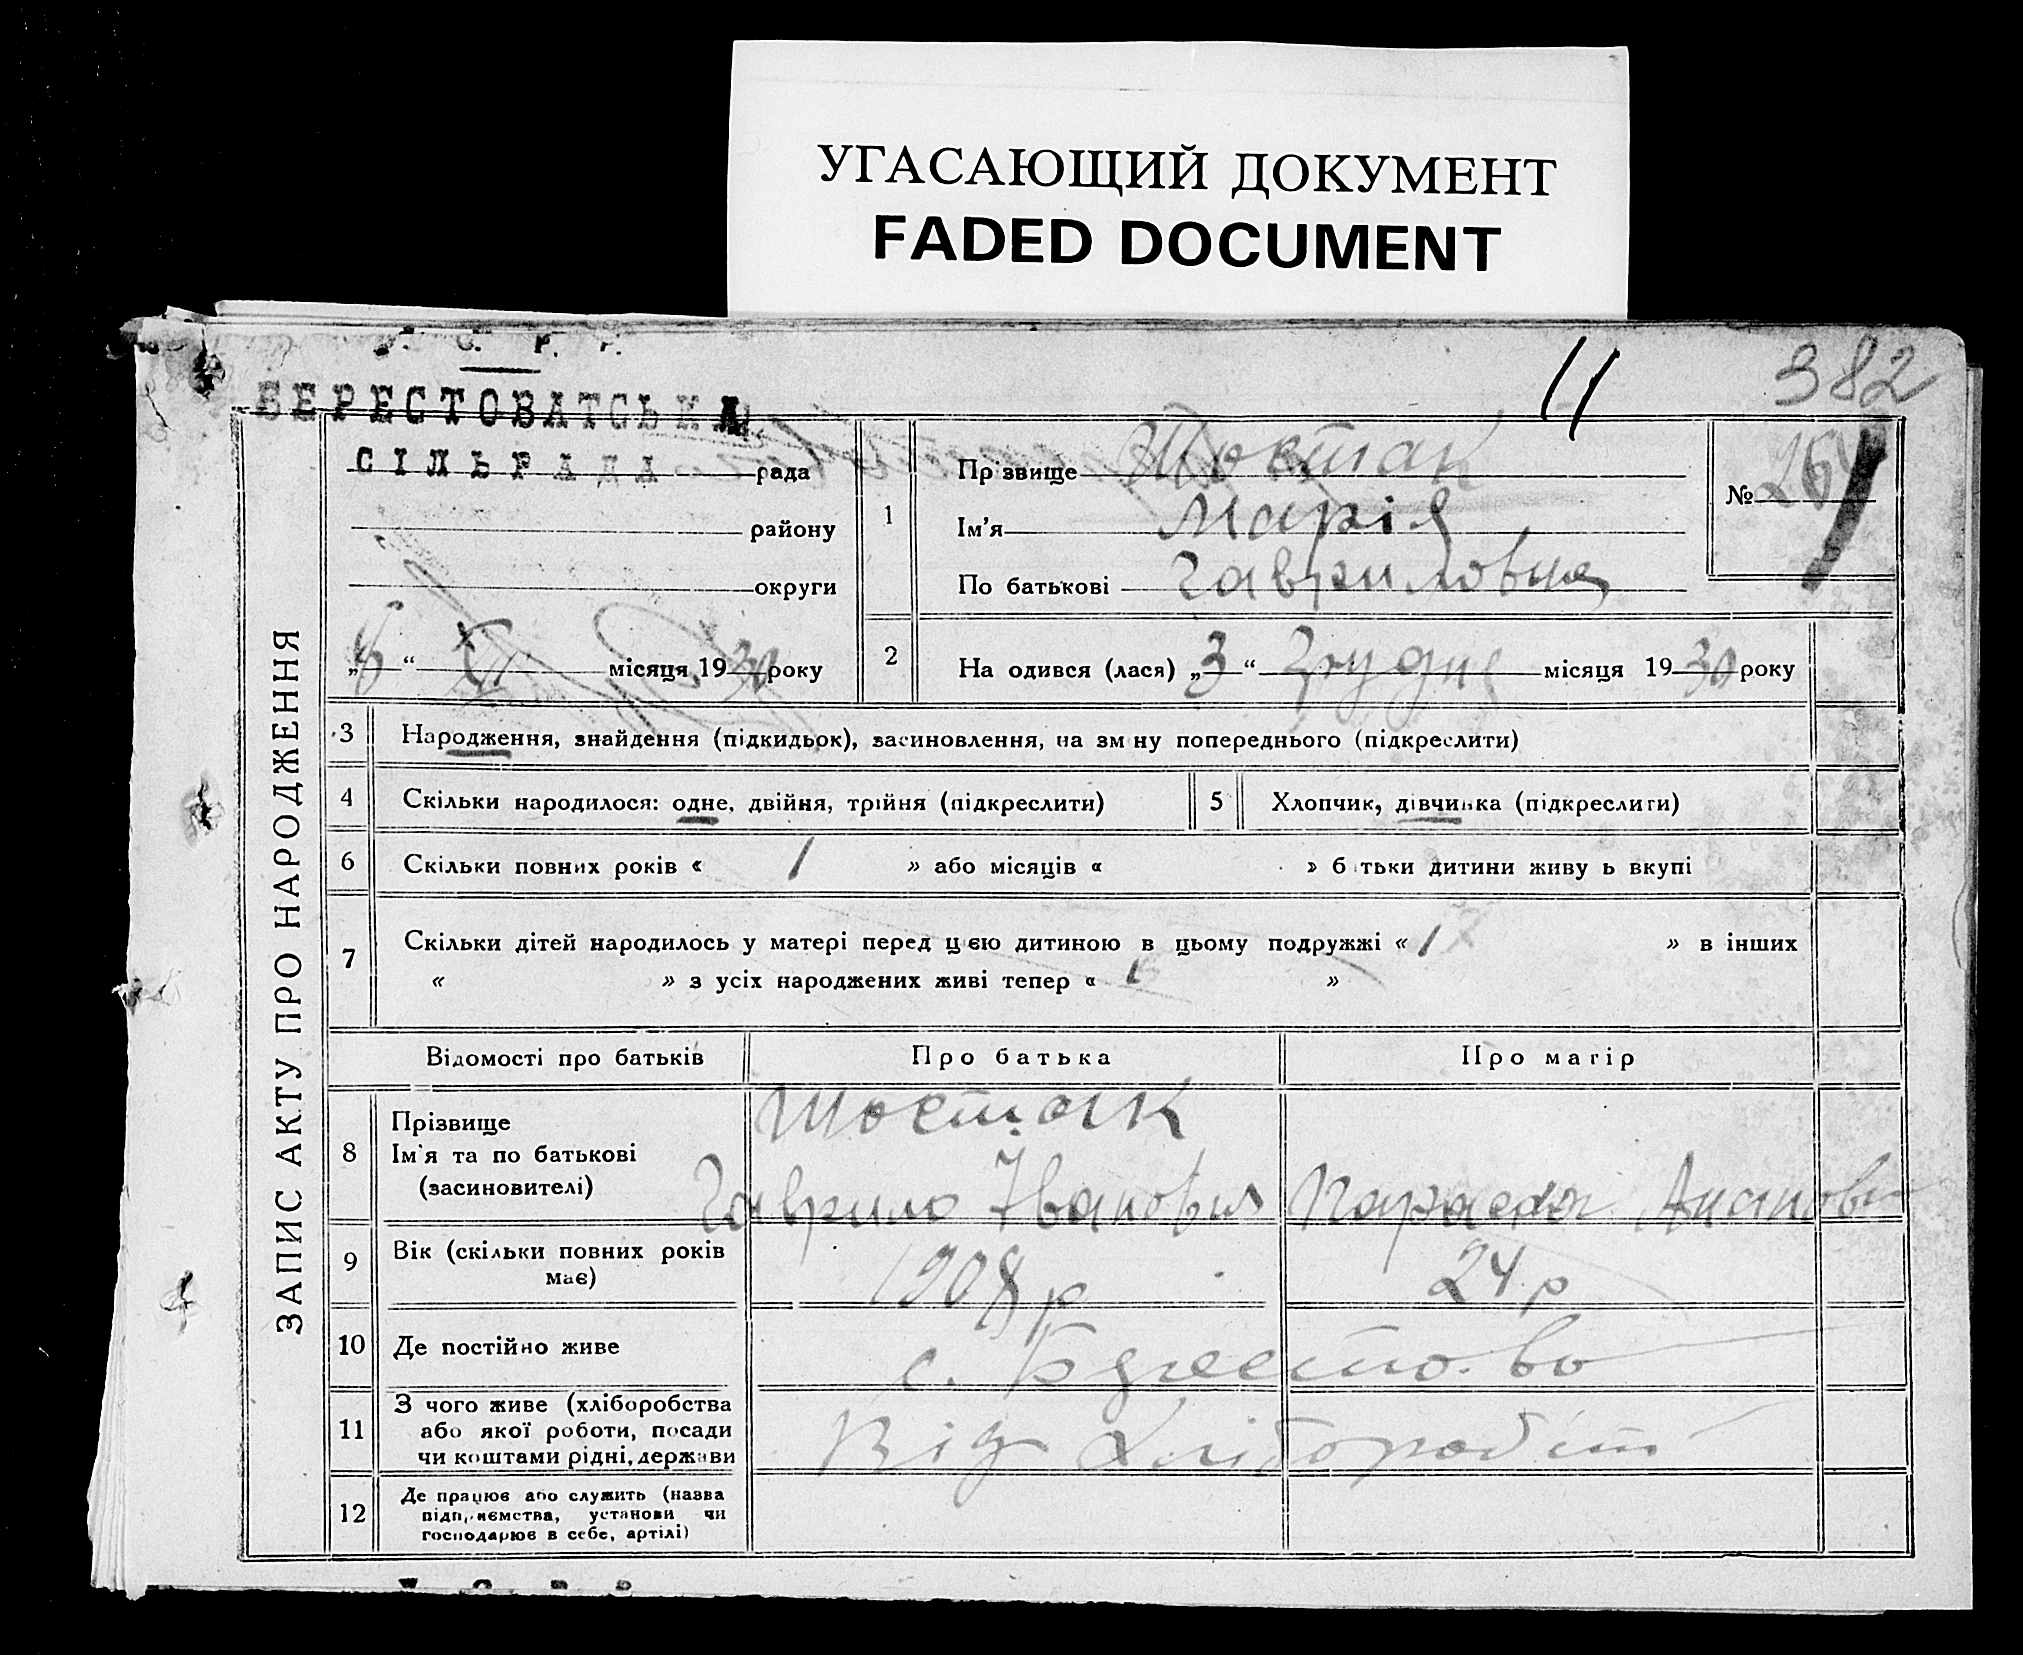 УГАСАЮЩИЙ ДОКУМЕНТ
FADED DOCUMENT
11
382
БЕРЕСТОВАТСЬКА
СІЛЬРАДА рада
району
округи
„6“ XII місяця 1930 року
1
Пр звище Шостак
Ім'я Марія
По батькові Гавриловна
№ 264
2
На одився (лася) „3“ Грудня місяця 1930 року
ЗАПИС АКТУ ПРО НАРОДЖЕННЯ
3 Народження, знайдення (підкидьок), засиновлення, на зм ну попереднього (підкреслити)
4 Скільки народилося: одне, двійня, трійня (підкреслити)
5 Хлопчик, дівчинка (підкреслити)
6 Скільки повних років « 1 » або місяців « » б тьки дитини живу ь вкупі
7 Скільки дітей народилось у матері перед цією дитиною в цьому подружжі « 1 » в інших
« » з усіх народжених живі тепер « »
Відомості про батьків Про батька Про матір
8 Прізвище
Ім'я та по батькові
(засиновителі)
Шостак
Гаврило Іванович
Параска
9 Вік (скільки повних років
має)
1908 р
24 р
10 Де постійно живе
с. Берестово
11 З чого живе (хліборобства
або якої роботи, посади
чи коштами рідні, держави
Від Хліборобст
12 Де працює або служить (назва
підприємства, установи чи
господарює в себе, артілі)